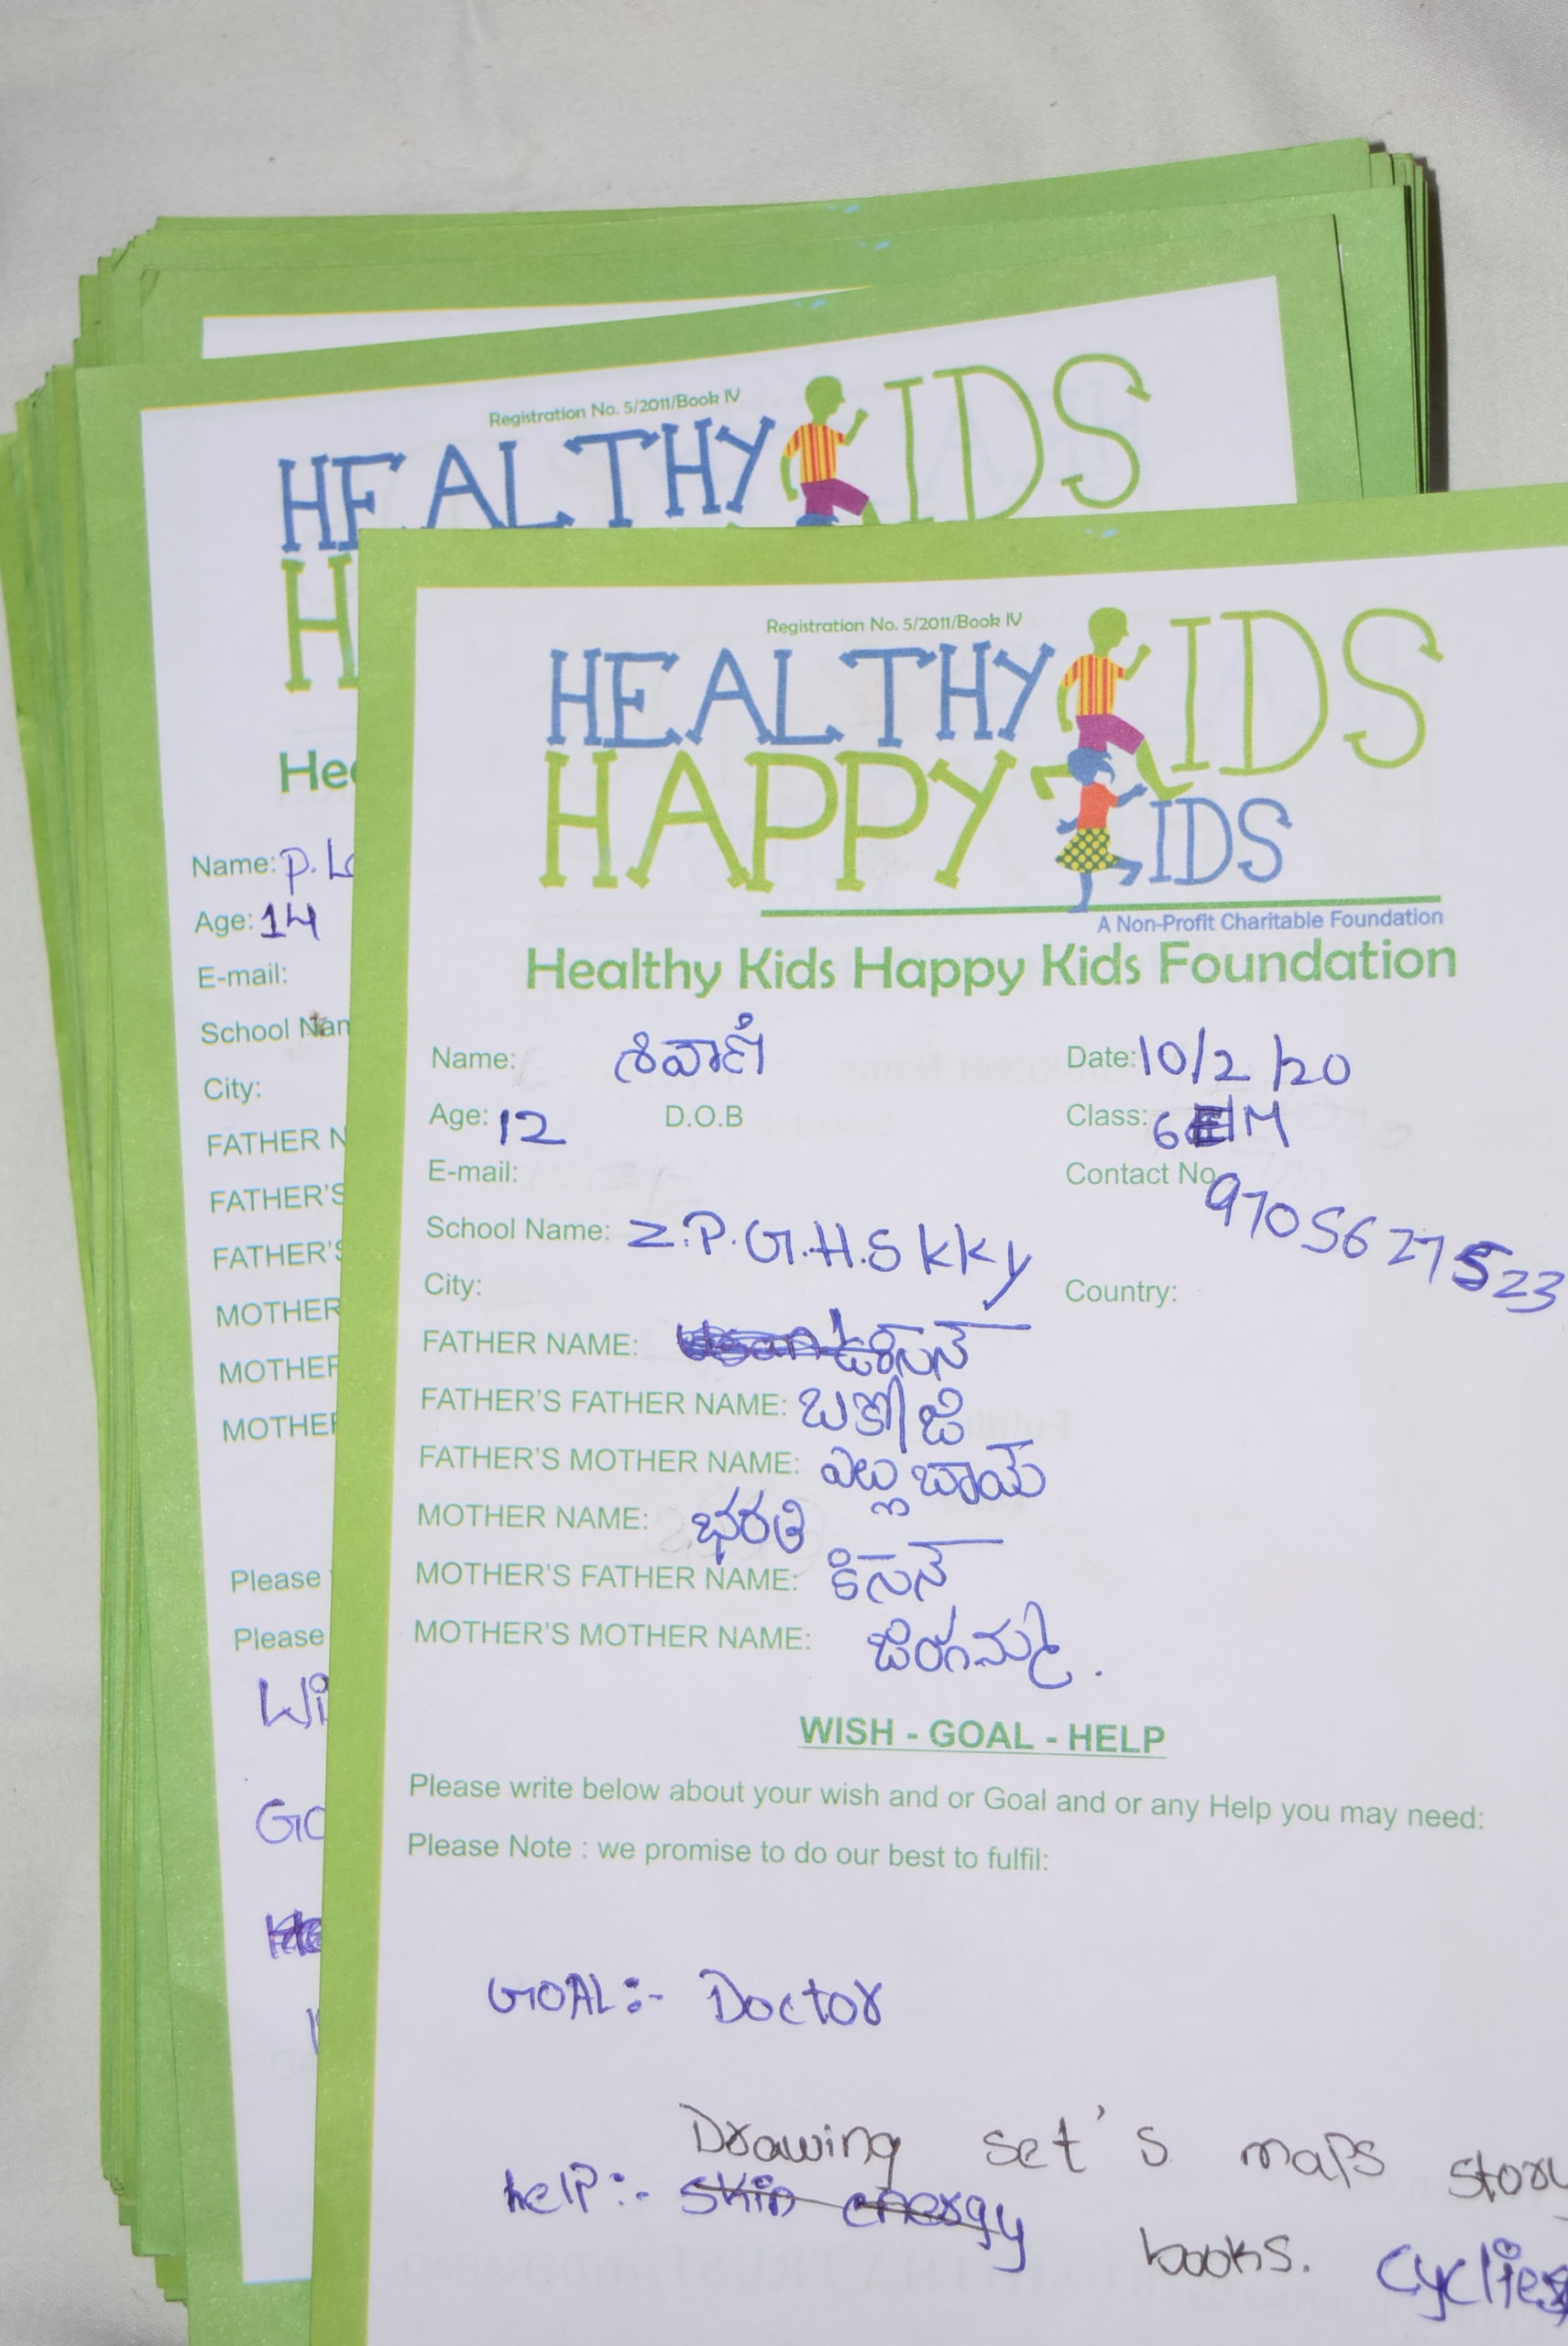 Registration No. 5/2011/Book IV
HEALTHY KIDS
H
Hea
Name: P. La
Age: 14
E-mail:
School Nam
City:
FATHER N
FATHER'S
FATHER'S
MOTHER
MOTHER
MOTHER
Please
Please
Wi
GO
Registration No. 5/2011/Book IV
HEALTHY KIDS
HAPPY KIDS
A Non-Profit Charitable Foundation
Healthy Kids Happy Kids Foundation
Name: శివాణి Date: 10/2/20
Age: 12 D.O.B Class: 6 E/M
E-mail: Contact No. 9705627523
School Name: Z.P.G.H.S kky
City: Country:
FATHER NAME:
FATHER'S FATHER NAME:
FATHER'S MOTHER NAME: ఎల్లబాయి
MOTHER NAME: భరతి
MOTHER'S FATHER NAME: కిసన్
MOTHER'S MOTHER NAME:
WISH - GOAL - HELP
Please write below about your wish and or Goal and or any Help you may need:
Please Note : we promise to do our best to fulfil:
GOAL:- Doctor
Drawing set's maps story
help:- skin energy books. Cyclies